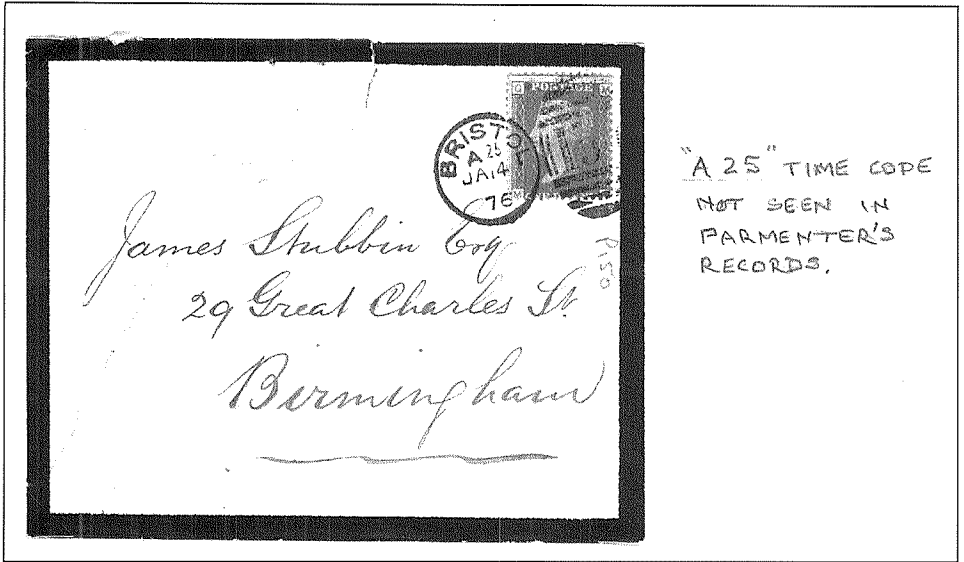 POSTAGE
BRISTOL
A 25
JA 14
76
James Stubbin Esq
29 Great Charles St.
Birmingham
P150
"A 25" TIME CODE
NOT SEEN IN
PARMENTER'S
RECORDS.